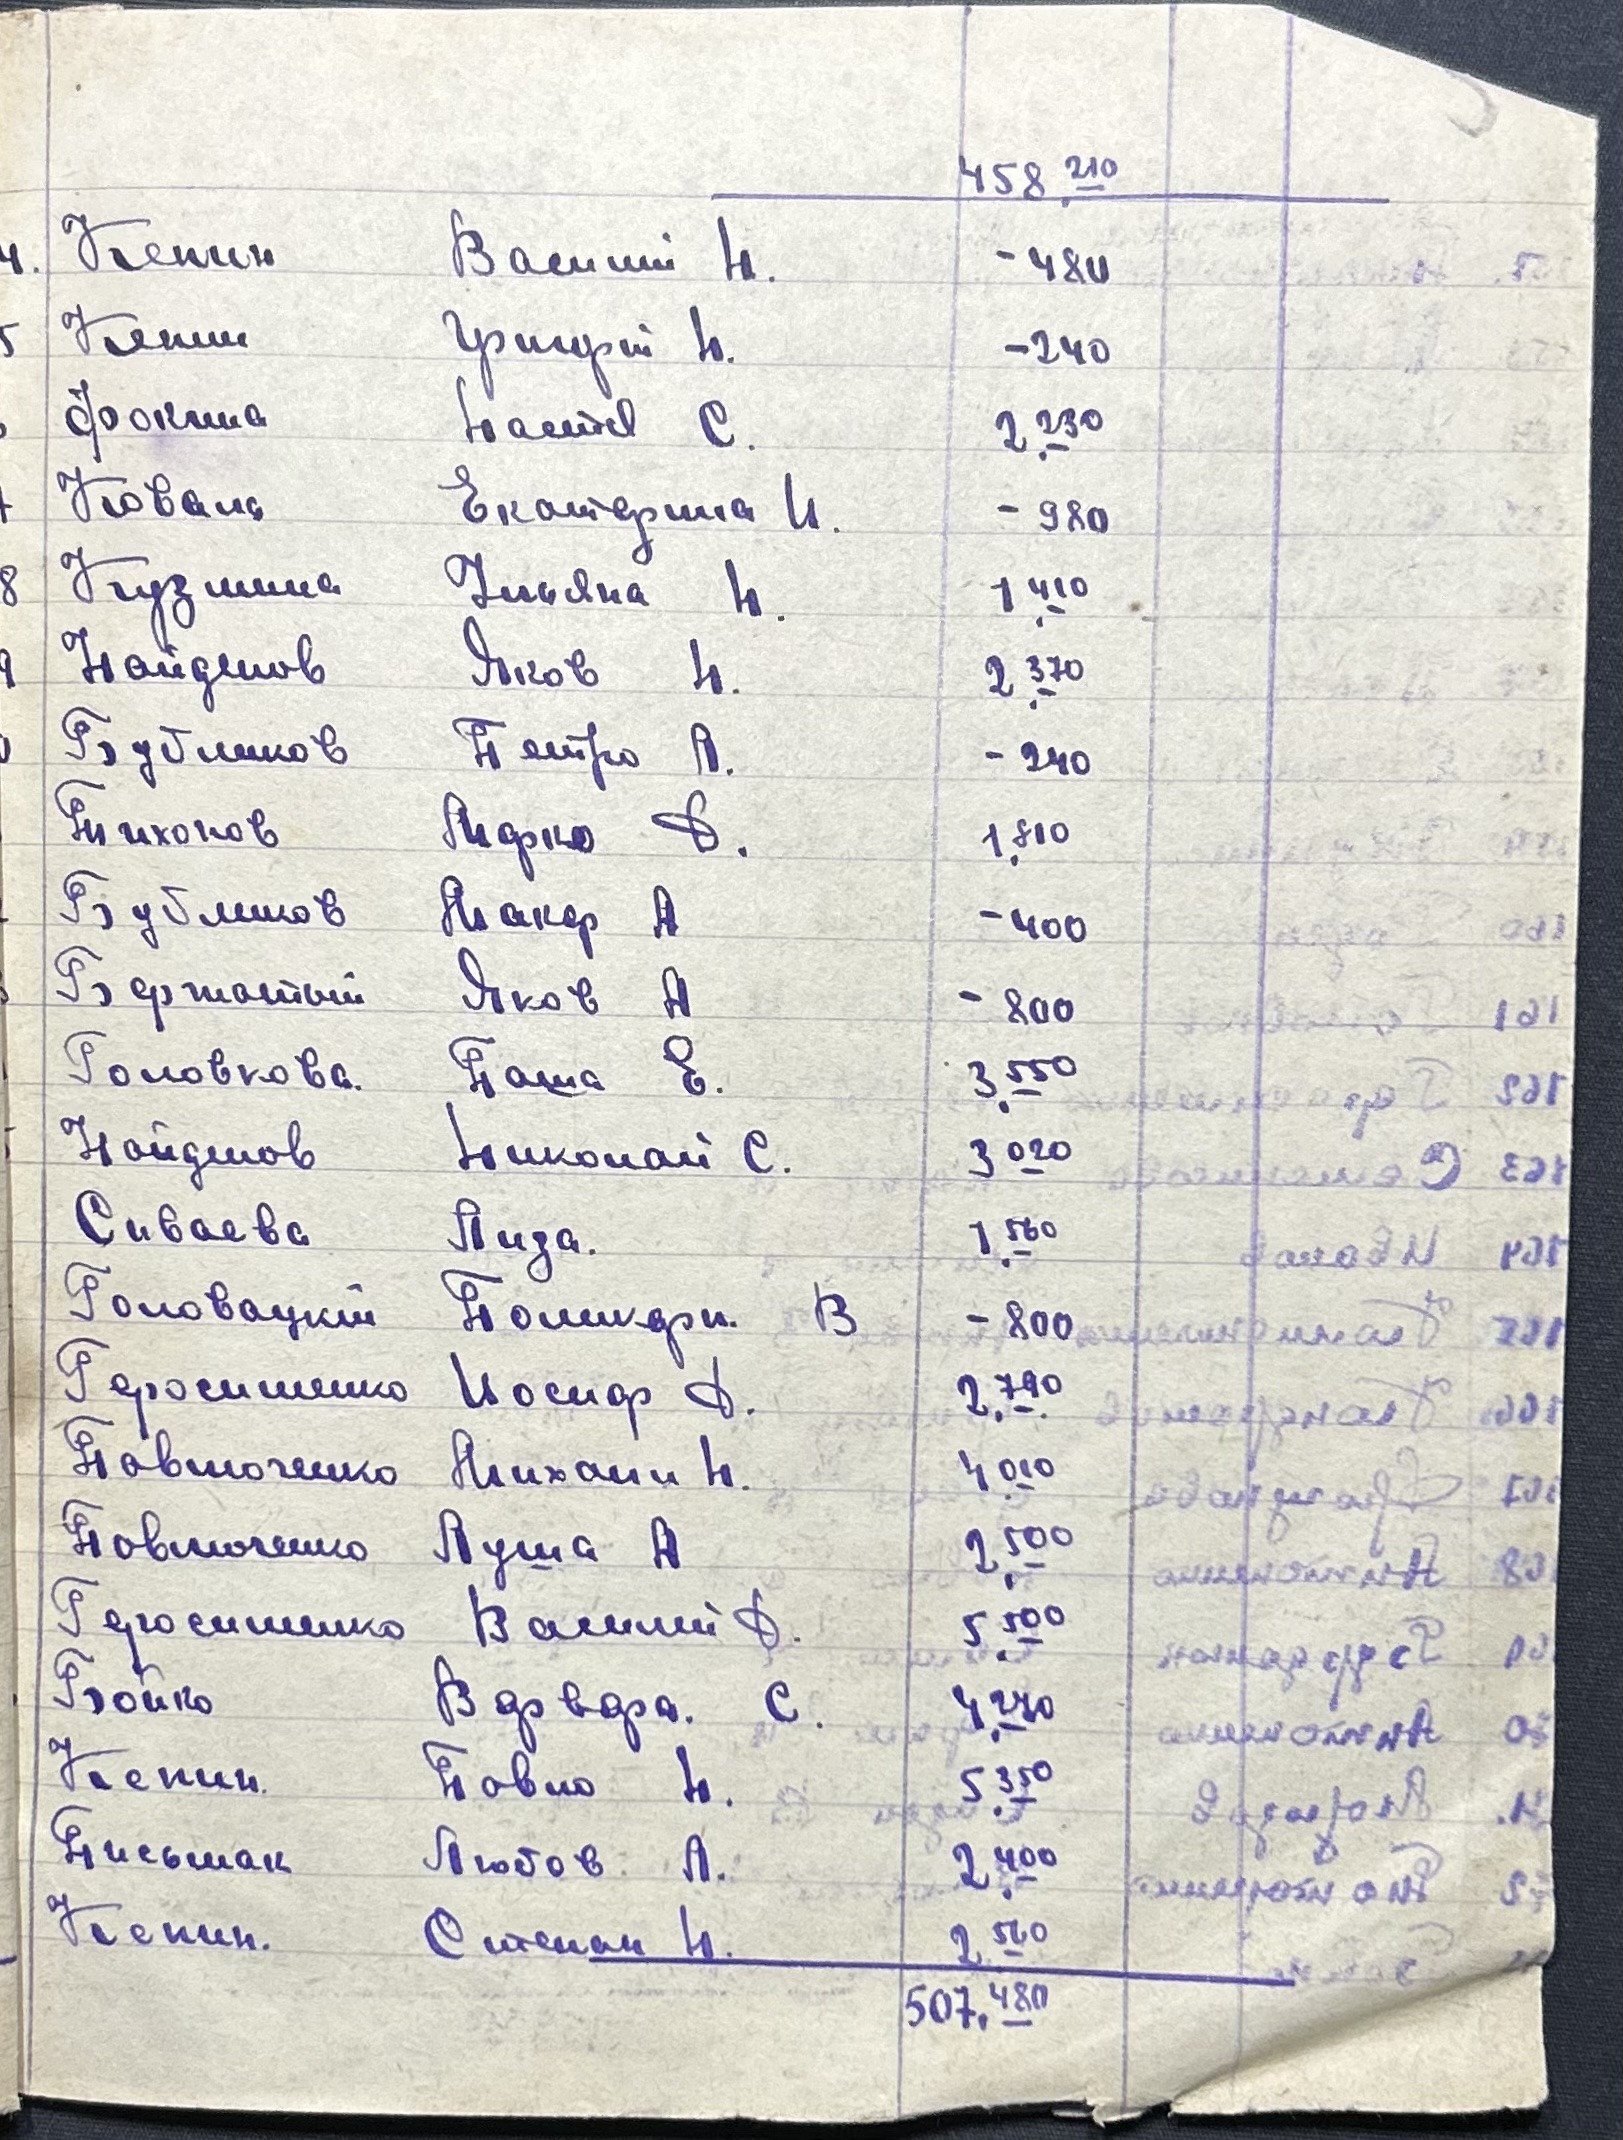 458,210
4. Кепин Василий Н. -480
5 Кепин Григорий Н. -240
Фокина Настя С. 2,230
7 Коваль Екатерина И. -980
8 Кузмина Ульяна Н. 1,410
9 Найденов Яков Н. 2,370
0 Бубликов Петро А. -240
Тихонов Марко Ф. 1,810
Бубликов Макар А -400
Бержатый Яков А -800
Головкова. Паша Е. 3,550
Найденов Николай С. 3 020
Сиваева Лиза. 1,560
Головацкий Поликарп. В -800
Герасименко Иосиф Ф. 2,790.
Павлюченко Михаил Н. 4,010
Павлюченко Луша А 2,500
Герасименко Василий Ф. 5,500
Бойко Варвара. С. 4,270
Кепин. Павло Н. 5,350
Письмак Любов. А. 2,400
Кепин. Степан Н. 2 560
507,480